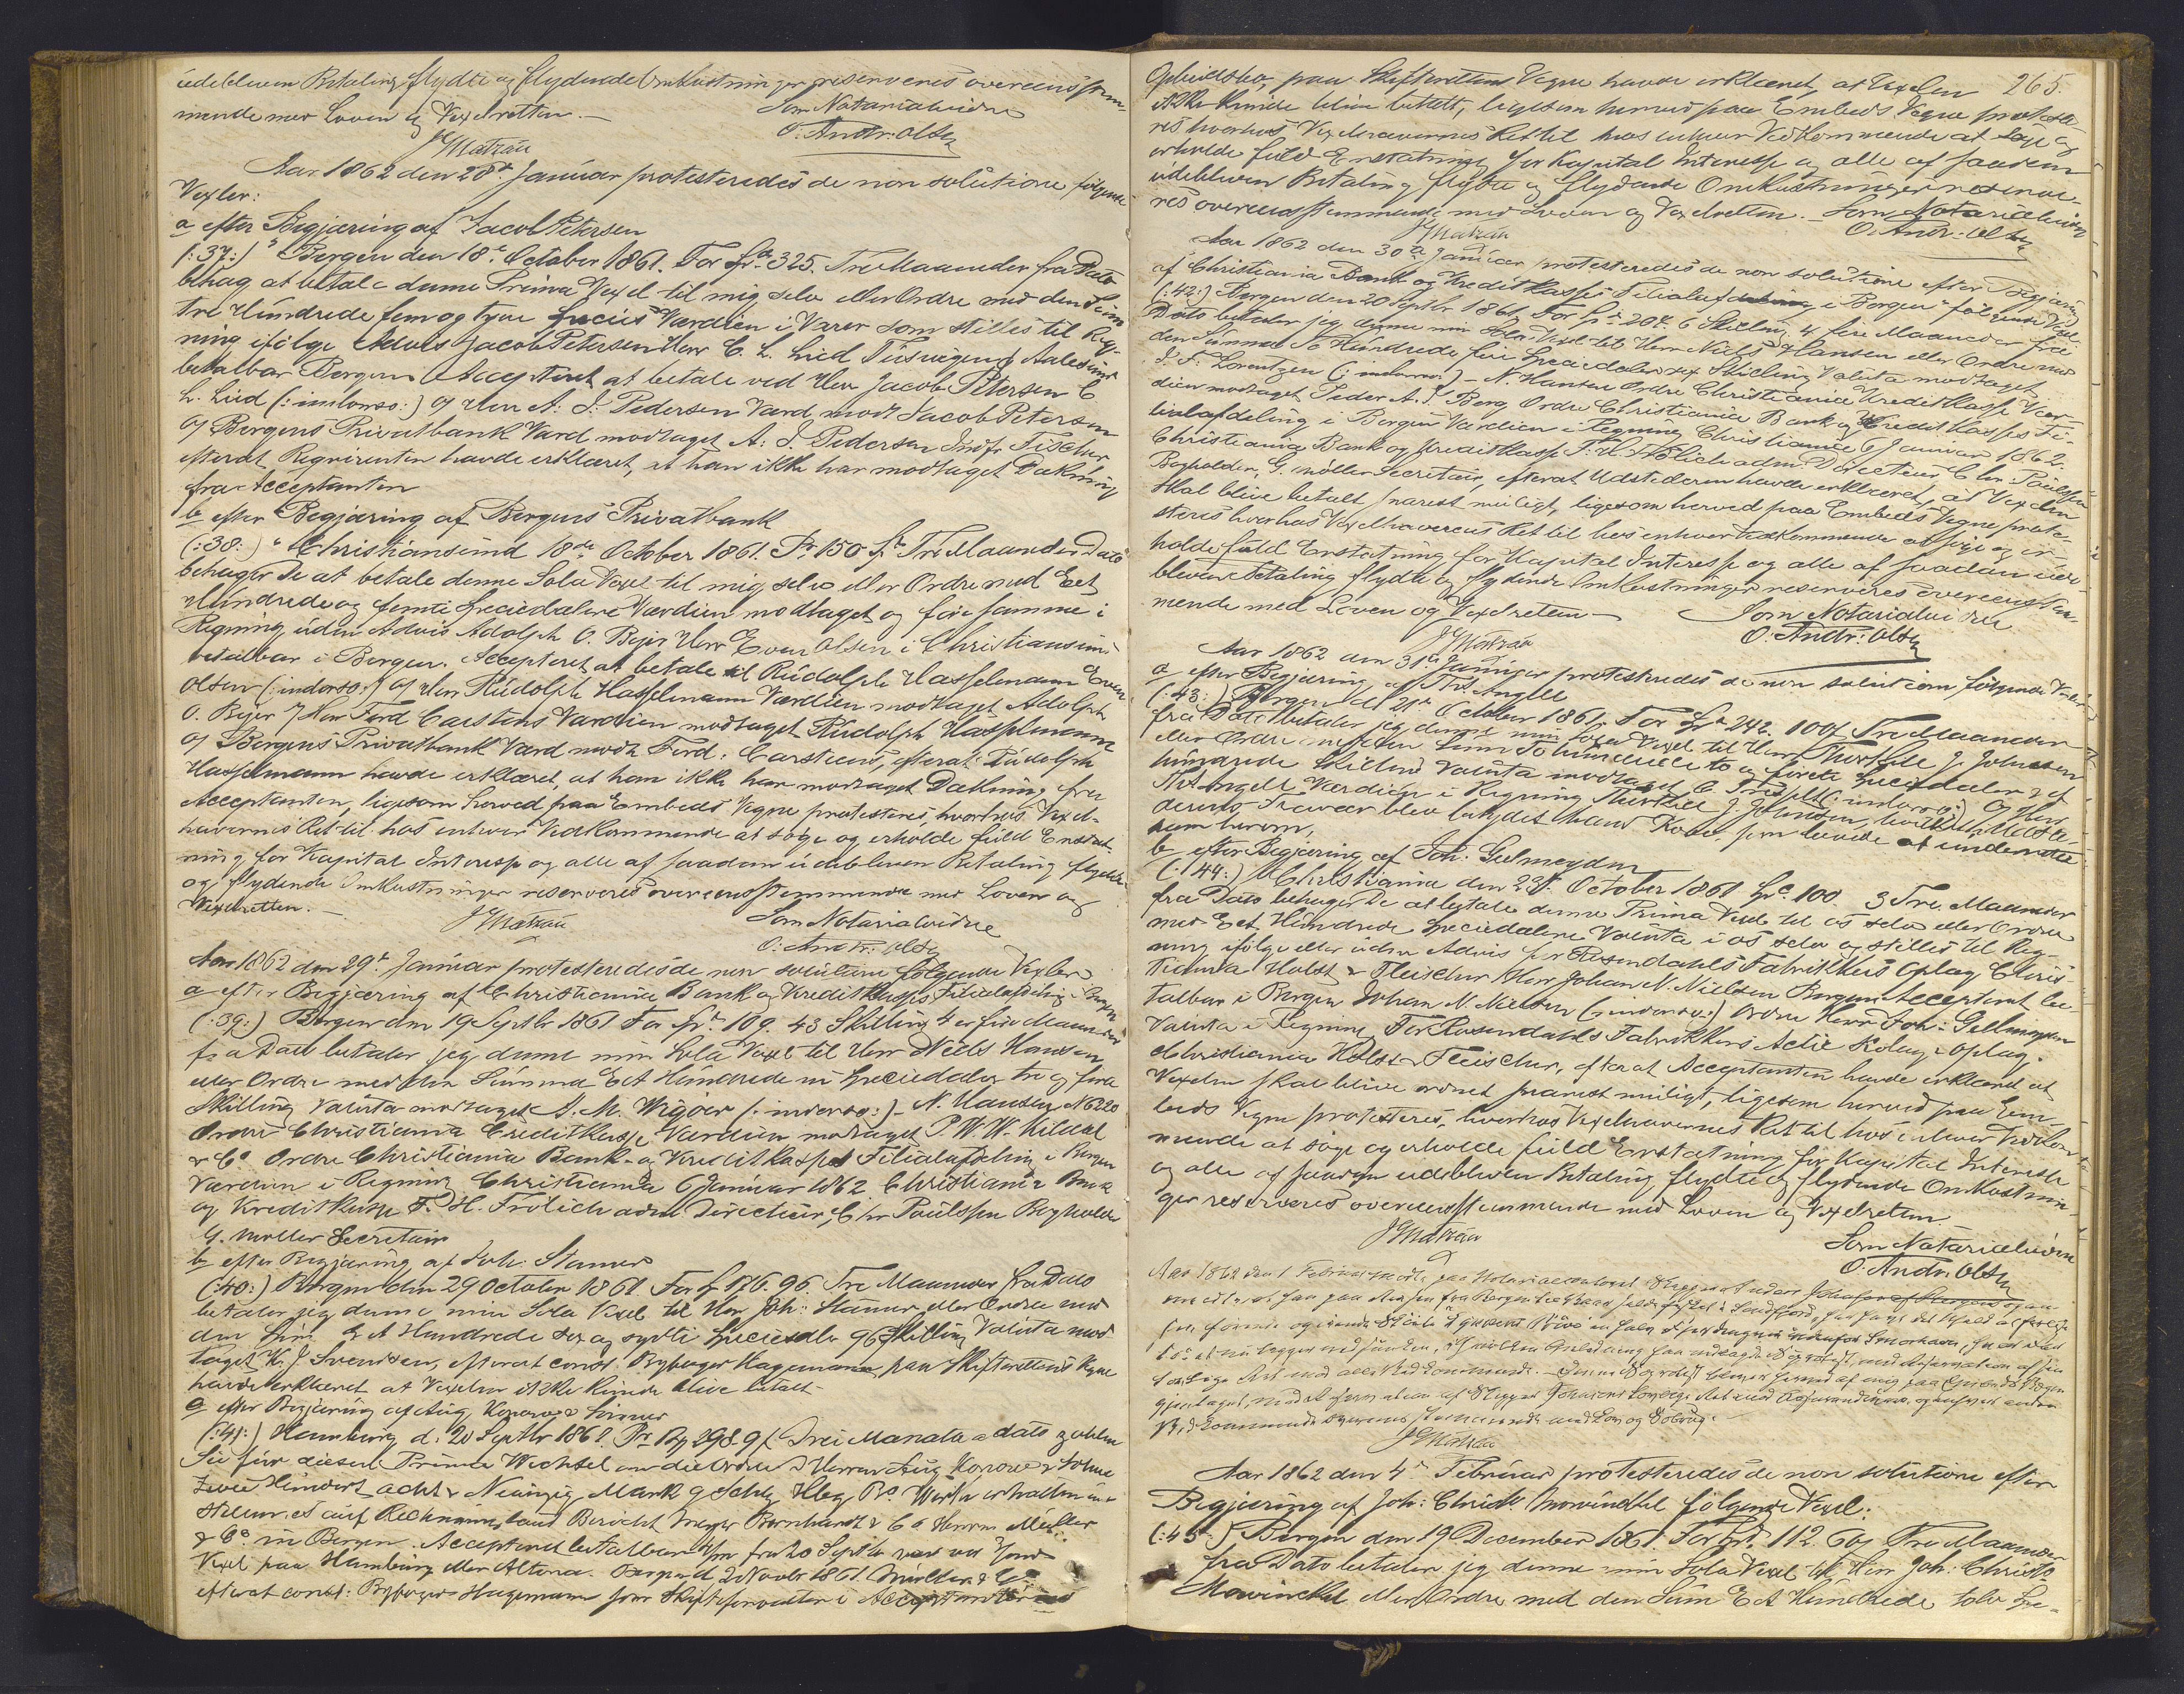 udebleven Betaling flydte og flydende Omkostninger reserveres overeensstem-
mende med Loven og Vexelretten.—
Som Notarialvidne
JGMatzau
O: Andr: Olsen
Aar 1862 den 28de Januar protesteredes de non solutione følgende
Vexler:
a efter Begjæring af Jacob Petersen
(:37:) "Bergen den 18de October 1861. For Spd. 325. Tre Maaneder fra Dato
behag at betale denne Prima Vexel til mig selv eller Ordre med den Sum
tre Hundrede fem og tyve Species Værdien i Varer som stilles til Reg-
ning ifølge Advis Jacob Petersen Herr C. L. Lied Aalesund
betalbar Bergen Accepteret at betale ved Herr Jacob Petersen C
L. Lied (:indorso:) og Herr A: J: Pedersen Værd modt Jacob Petersen
og Bergens Privatbank Værd modtaget A: J. Pedersen Indf. Fischer
efterat Reqvirenten havde erklæret, at han ikke har modtaget Dækning
fra Acceptanten
b efter Begjæring af Bergens Privatbank
(:38:) "Christiansund 18de October 1861. Pr 150 Spd Tre Maaneder Dato
behager De at betale denne Sola Vexel til mig selv eller Ordre med Eet
Hundrede og femti Speciedalere Værdien modtaget og føre samme i
Regning uden Advis Adolph O. Beyer Herr Even Olsen i Christiansund
betalbar i Bergen. Accepteret at betale til Rudolph Hasselmann Even
Olsen (:indorso:) og Herr Rudolph Hasselmann Værdien modtaget Adolph
O. Beyer og Herr Ferd Carstens Værdien modtaget Rudolph Hasselmann
og Bergens Privatbank Værd modt Ferd: Carstens, efterat Rudolph
Hasselmann havde erklæret, at han ikke har modtaget Dækning fra
Acceptanten, ligesom herved paa Embeds Vegne protesteres, hvorhos Vexel-
havernes Ret til hos enhver Vedkommende at søge og erholde fuld Erstat-
ning for Kapital Interesse og alle af saadan udebleven Betaling flydte
og flydende Omkostninger reserveres overeensstemmende med Loven og
Vexelretten.—
JGMatzau
Som Notarialvidne
O: Andr: Olsen
Aar 1862 den 29de Januar protesteredes de non solutione følgende Vexler
a efter Begjæring af Christiania Bank og Kreditkasses Filialafdeling i Bergen
(:39:) Bergen den 19 Septbr 1861 For Spd. 109. 43 Skilling 4 er fire Maaneder
fra Dato betaler jeg denne min Sola Vexel til Herr Niels Hansen
eller Ordre med den Summa Eet Hundrede ni Speciedaler tre og fire
Skilling Valuta modtaget A. M. Wigøer (:indorso:) - N. Hansen N 6220
Ordre Christiania Creditkasse Værdien modtaget P. W. W. Kildal
& Co Ordre Christiania Bank- og Kreditkasses Filialafdeling i Bergen
Værdien i Regning Christiania 6 Januar 1862. Christiania Bank
og Kreditkasse F. H. Frölich adm. Directeur, Chr Paulssen Bogholder
G. Møller Secretair
b efter Begjæring af Joh: Stamer
(:40:) Bergen den 29 October 1861 For Sp 176. 96. Tre Maaneder fra Dato
betaler jeg denne min Sola Vexel til Herr Joh: Stamer, eller Ordre med
den Sum Eet Hundrede sex og sytti Speciesdlr 96 Skilling Valuta mod
taget K. J. Svendsen, efterat const. Byfoged Hagemann paa Skifterettens Vegne
havde erklæret at Vexelen ikke kunde blive betalt.
c efter Begjæring af Aug. Konow & Sönner
(:41:) Hamburg d: 20 Septbr 1861. Pr Bco 298. 9 ß Drei Monate a dato zahlen
Sie für diesen Prima Wechsel an die Ordre Herren Aug Konow & Sohne
Zwei Hundert acht & Neunzig Mark 9 Schlg Hbg Bco Werth erhalten und
stellen es auf Rechnung laut Bericht Bernhardt & Co Herren Müller
& Co in Bergen. Accepteret betalbar fra 20 Septbr ved
Vexel paa Hamburg eller Altona. Bergen d 2 Novbr 1861. & Co
efterat const: Byfoged Hagemann som Skifteforvalter i

265.
Opbudsbo, paa Skifterettens Vegne havde erklæret, at Vexelen
ikke kunde blive betalt, ligesom herved paa Embeds Vegne proteste-
res hvorhos Vexelhavernes Ret til hos enhver Vedkommende at søge og
erholde fuld Erstatning for Kapital Interesse og alle af saadan
udebleven Betaling flydte og flydende Omkostninger reserve-
res overeensstemmende med Loven og Vexelretten. Som Notarialvidne
JGMatzau
O. Andr: Olsen
Aar 1862 den 30te Januar protesteredes de non solutione efter Begjæring
af Christiania Bank og Kreditkasses Filialafdeling i Bergen følgende Vexel
(:42:) Bergen den 20 Septbr 1861. For Sp. 204. 6 Skilling 4 fire Maaneder fra
Dato betaler jeg denne min Sola Vexel til Herr Niels Hansen eller Ordre med
den Summa To Hundrede fire Speciedaler sex Skilling Valuta modtaget
J. F. Lorentzen (:indorso:) - N. Hansen Ordre Christiania Kreditkasse Vær-
dien modtaget Peder A. J. Berg Ordre Christiania Bank og Kreditkasses Fi-
lialafdeling i Bergen Værdien i Regning Christiania 6 Januar 1862.
Christiania Bank og Kreditkasse F. H. Frölich adm. Directeur Chr. Paulssen
Bogholder, G. Møller Secretair, efterat Udstederen havde erklæret, at Vexelen
skal blive betalt snarest muligt, ligesom herved paa Embeds Vegne prote-
steres hvorhos Vexelhavernes Ret til hos enhver Vedkommende at søge og er-
holde fuld Erstatning for Kapital Interesse og alle af saadan ude-
bleven Betaling flydte og flydende Omkostninger reserveres overeensstem-
mende med Loven og Vexelretten—
Som Notarialvidne
JGMatzau
O: Andr: Olsen
Aar 1862 den 31te Januar protesteredes de non solutione følgende Vexler
a efter Begjæring af Th: Angell
(:43:) Bergen d 21de October 1861. For Sp. 242. 100 ß Tre Maaneder
fra Dato betaler jeg denne min Sola Vexel til Herr Thorkild J. Johnsen
eller Ordre med den Sum To hundrede to og førete Speciedaler og et
hundrede Skilling Valuta modtaget C. (:indorso:) og Herr
Th. Angell Værdien i Regning Thorkild J. Johnsen, Udste-
derens Fravær blev betydet hans Kone som lovede at underrette
ham herom,
b efter Begjæring af Joh: Gelmeyden
(:44:) "Christiania den 29. October 1861 Spd. 100. 3 Tre Maaneder
fra Dato behager De at betale denne Prima Vexel til os selv eller Ordre
med Eet Hundrede Speciedalere Valuta i os selv og stilles til Reg-
ning ifølge eller uden Advis for Rosendahls Fabrikkers Oplag Chris-
tiania Holst & Fleischer Herr Johan N. Nielsen Bergen. Accepteret be-
talbar i Bergen Johan N. Nielsen (:indorso:) Ordre Herr Joh: Gellmeyden
Valuta i Regning For Rosendahls Fabrikkers Actie Kolag's Oplag.
Christiania Holst & Fleischer, efterat Acceptanten havde erklæret at
Vexelen skal blive ordnet snarest muligt, ligesom herved paa Em-
beds Vegne protesteres, hvorhos Vexelhavernes Ret til hos enhver Vedkom-
mende at søge og erholde fuld Erstatning for Kapital Interesse
og alle af saadan udebleven Betaling flydte og flydende Omkostnin-
ger reserveres overeensstemmende med Loven og Vexelretten
JGMatzau
Som Notarialvidne
O. Andr: Olsen
Aar 1862 den 1 Februar mødte paa Notarialcontoret Skipper
JGMatzau
Aar 1862 den 4de Februar protesteredes de non solutione efter
Begjæring af Joh: Christ Mowinckel følgende Vexel:
(:45:) Bergen den 19 December 1861. For Spd. 112. 60 ß Tre Maaneder
fra Dato betaler jeg denne min Sola Vexel til Herr Joh: Christ
Mowinckel eller Ordre med den Sum Eet Hundrede tolv Spe-